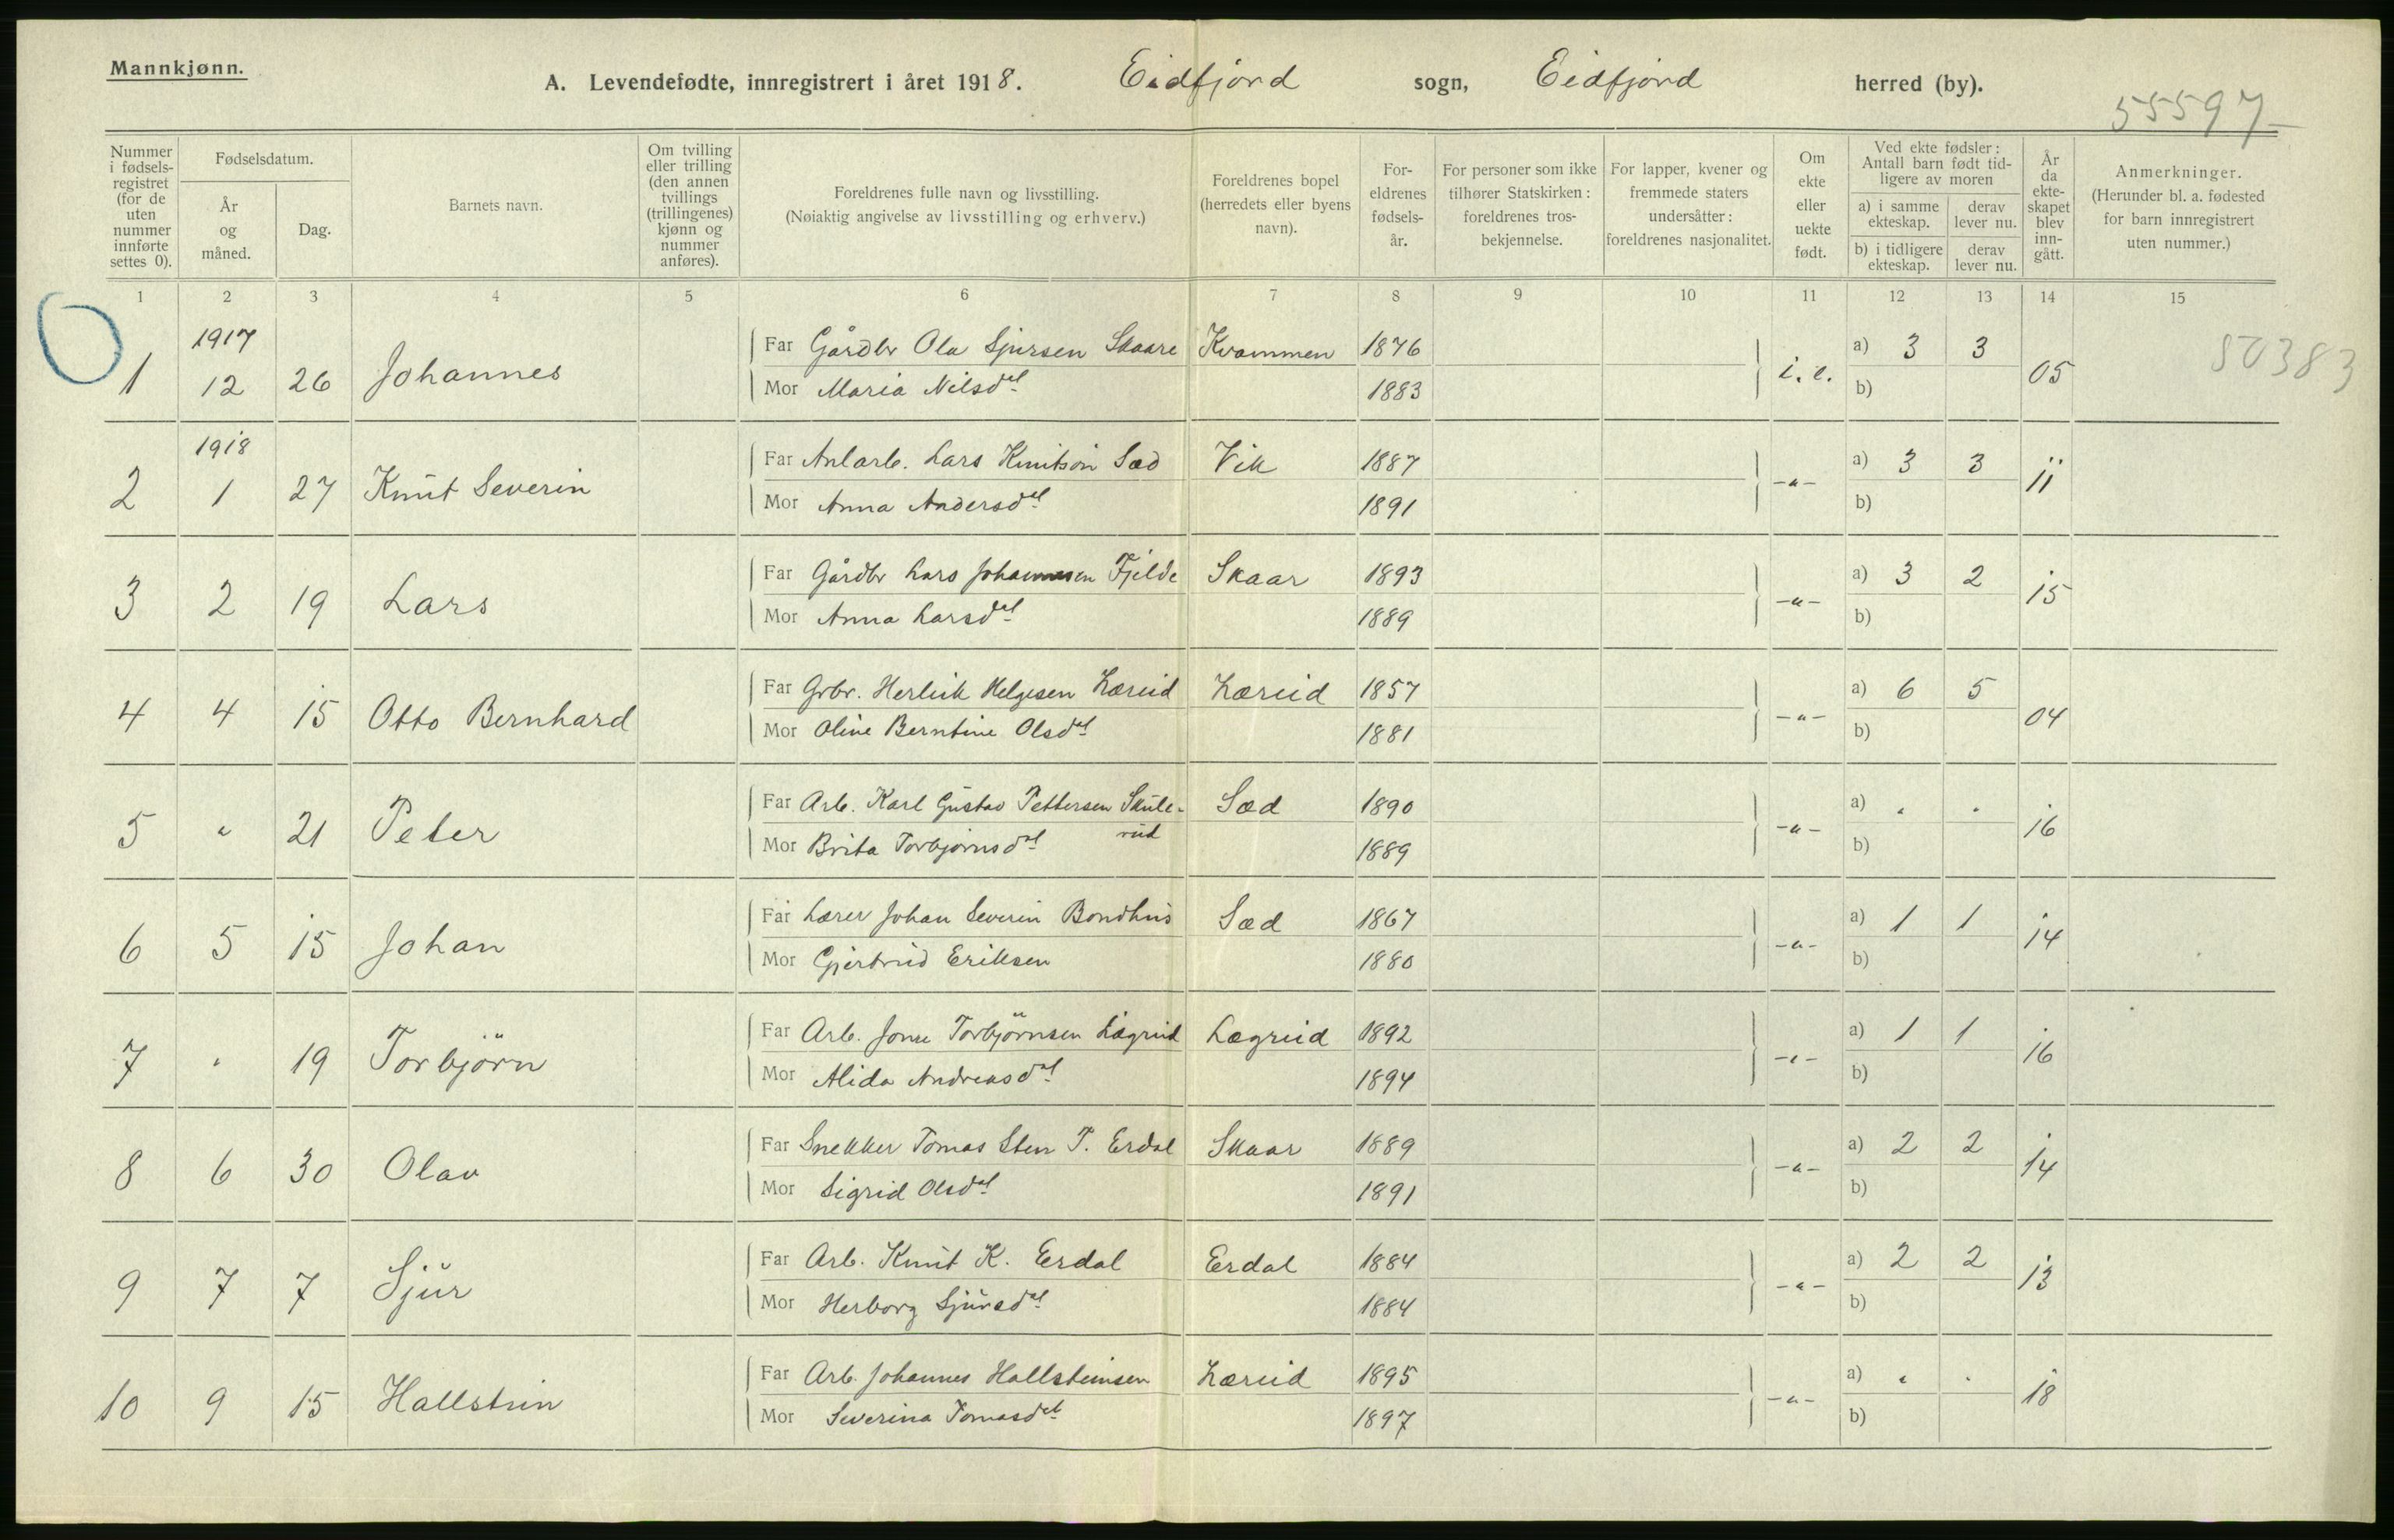 Mannkjønn.
A. Levendefødte, innregistrert i året 1918. Eidfjord sogn, Eidfjord herred (by).
55597
Nummer i fødsels-registret (for de uten nummer innførte settes 0).
Fødselsdatum.
År og måned.
Dag.
Barnets navn.
Om tvilling eller trilling (den annen tvillings (trillingenes) kjønn og nummer anføres).
Foreldrenes fulle navn og livsstilling.
(Nøiaktig angivelse av livsstilling og erhverv.)
Foreldrenes bopel (herredets eller byens navn).
For-eldrenes fødsels-år.
For personer som ikke tilhører Statskirken: foreldrenes tros-bekjennelse.
For lapper, kvener og fremmede staters undersåtter: foreldrenes nasjonalitet.
Om ekte eller uekte født.
Ved ekte fødsler: Antall barn født tid-ligere av moren
a) i samme ekteskap. derav lever nu.
b) i tidligere ekteskap. derav lever nu.
År da ekte-skapet blev inn-gått.
Anmerkninger.
(Herunder bl. a. fødested for barn innregistrert uten nummer.)
1 2 3 4 5 6 7 8 9 10 11 12 13 14 15
1917
Far Gårdbr Ola Sjursen Skaare Kvammen 1876 a) 3 3 50383
1 12 26 Johannes i. e. 05
Mor Maria Nilsdtr 1883 b)
1918
Far Anlarb. Lars Knutson Sæd Vik 1887 a) 3 3
2 1 27 Knut Severin -"- 11
Mor Anna Andersdtr 1891 b)
Far Gårdbr Lars Johannesen Fjelde Skaar 1893 a) 3 2
3 2 19 Lars -"- 15
Mor Anna Larsdtr 1889 b)
Far Grbr. Herleik Helgesen Læreid Læreid 1857 a) 6 5
4 4 15 Otto Bernhard -"- 04
Mor Oline Berntine Olsdtr 1881 b)
Far Arb. Karl Gustav Pettersen Skule- Sæd 1890 a) " "
rud
5 " 21 Peter -"- 16
Mor Brita Torbjørnsdtr 1889 b)
Far Lærer Johan Severin Bondhus Sæd 1867 a) 1 1
6 5 15 Johan -"- 14
Mor Gjertrud Eriksen 1880 b)
Far Arb. Jone Torbjörnsen Lægreid Lægreid 1892 a) 1 1
7 " 19 Torbjörn -"- 16
Mor Alida Andreasdtr 1894 b)
Far Snekker Tomas Sten T. Erdal Skaar 1889 a) 2 2
8 6 30 Olav -"- 14
Mor Sigrid Olsdtr 1891 b)
Far Arb. Knut K. Erdal Erdal 1884 a) 2 2
9 7 7 Sjur -"- 13
Mor Herborg Sjursdtr 1884 b)
Far Arb. Johannes Hallsteinsen Læreid 1895 a) " "
10 9 15 Hallstein -"- 18
Mor Severina Tomasdtr 1897 b)